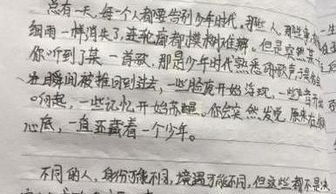 总有一天，每一个人都要告别少年时代，那些人，那些事
细雨一样消失了，连轮廓都模糊难辨，但是突然某一
你听到了某一首歌，那是少年时代熟悉的歌声，
瞬间被推回到过去，一些脸庞开始浮现，一些
响起，一些记忆开始苏醒，你会突然发觉，原来在
心底，一直蛰藏着一个少年。
不同的人，身份可能不同，境遇可能不同，但这些都不是